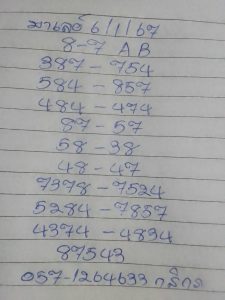 มาเลย์ 6/1/67
8-7 A B
387-754
584-857
484-474
87-57
58-38
48-47
7378-7524
5284-7857
4374-4834
87543
057-1264633 กสิกร